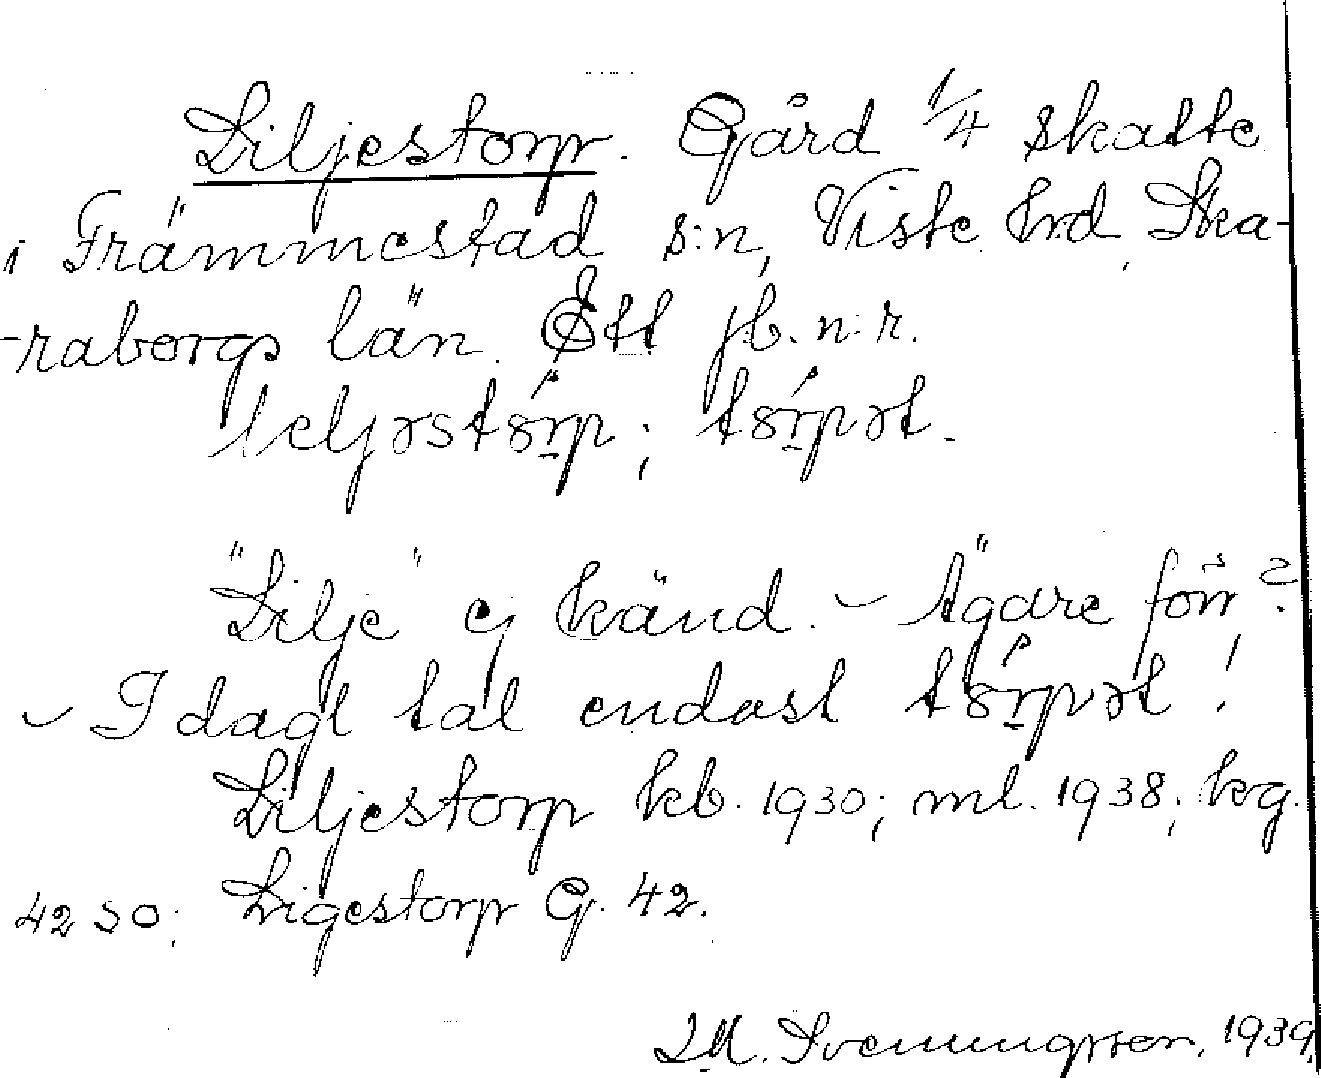 Liljestorp. Gård 1/4 skatte
i Främmestad s:n, Viste hrd, Ska-
-raborgs län. Ett jb. n:r.
lɩljəstórp; tórpət.
"Lilje" ej känd. - Ägare förr?
- I dagl tal endast tórpət!
Liljestorp kb. 1930; ml. 1938; kg.
42 SO; Ligestorp G. 42.
Svenungsson, 1939.